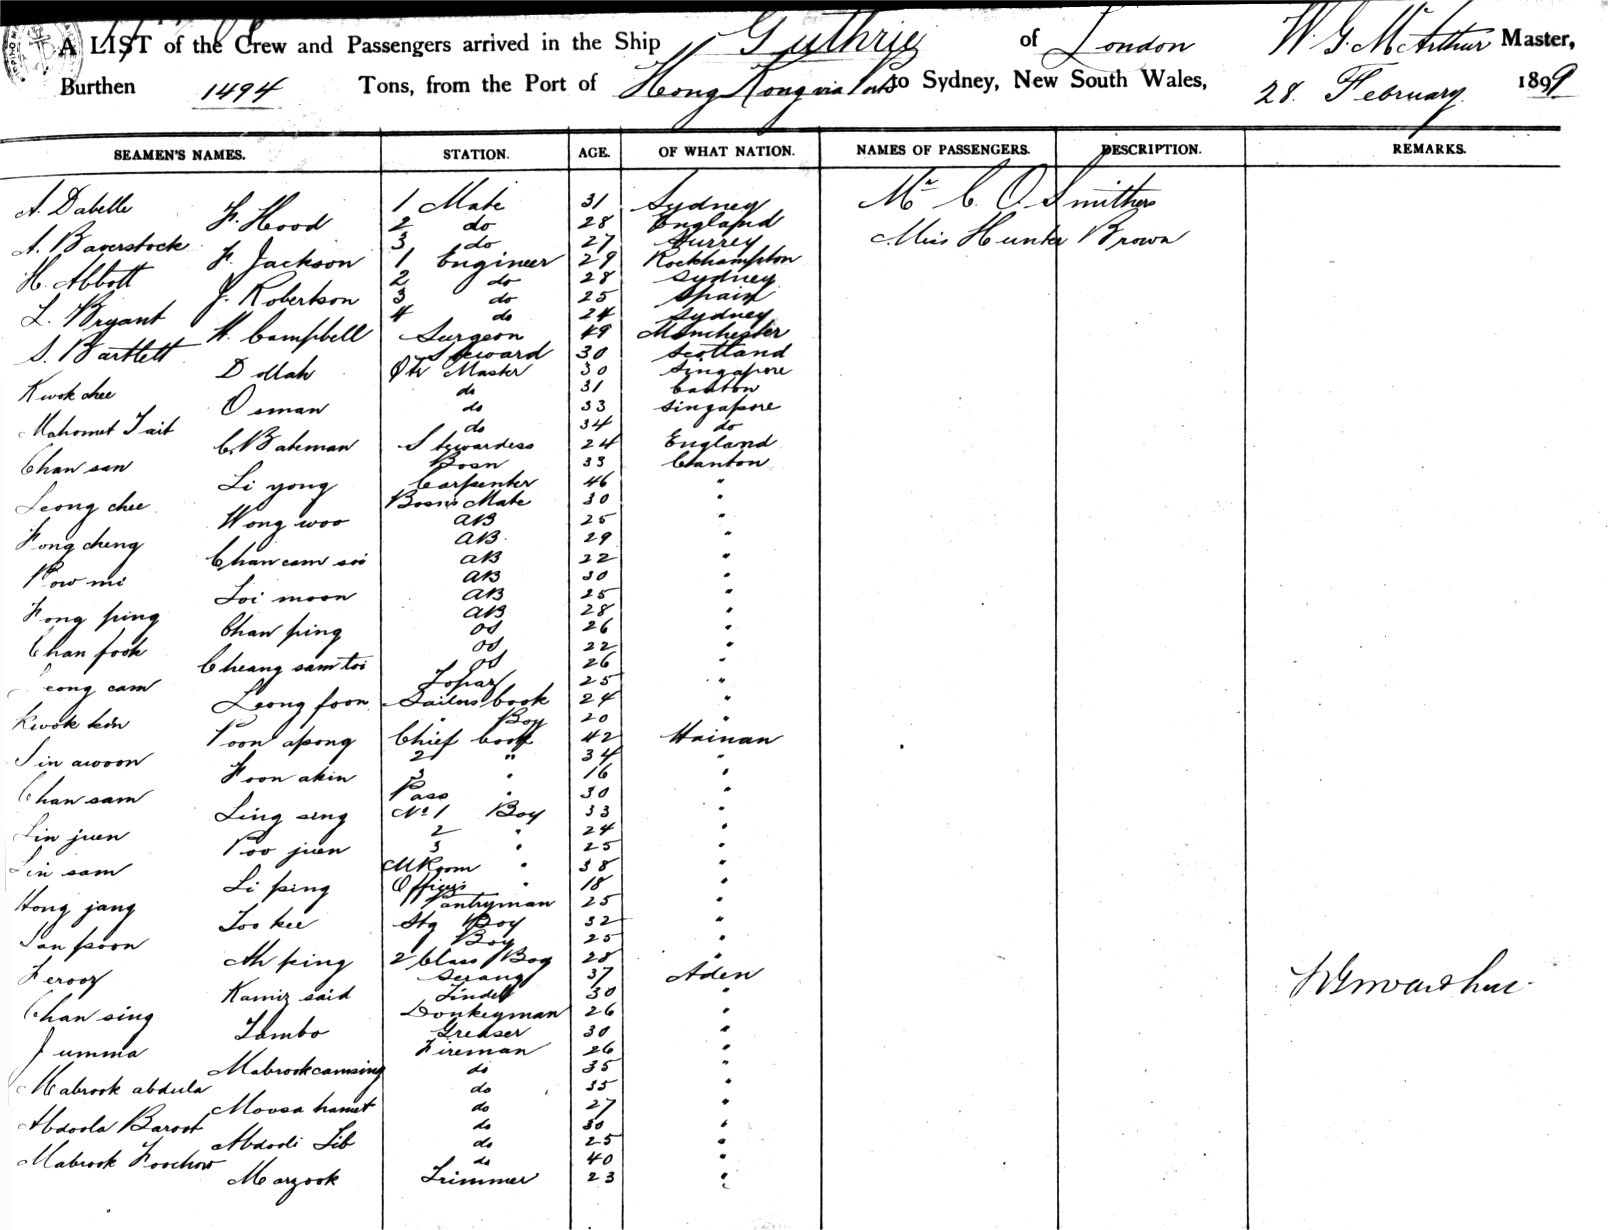 A LIST of the Crew and Passengers arrived in the Ship Guthrie of London W. G. McArthur Master,
Burthen 1494 Tons, from the Port of Hong Kong via Ports to Sydney, New South Wales, 28. February 1899
SEAMEN'S NAMES. STATION. AGE. OF WHAT NATION. NAMES OF PASSENGERS. DESCRIPTION. REMARKS.
A. Dabelle 1 Mate 31 Sydney Mr C. O. Smithers
F. Hood 2 do 28 England
A. Baverstock 3 do 27 Surrey Miss Hunter Brown
F. Jackson 1 Engineer 29 Rockhampton
H. Abbott 2 do 28 Sydney
J. Robertson 3 do 25 Spain
L. Bryant 4 do 24 Sydney
W. Campbell Surgeon 49 Manchester
S. Bartlett Steward 30 Scotland
Dollah Qtr Master 30 Singapore
Kwok chee do 31 Canton
Osman do 33 Singapore
Mahomet Tait do 34 do
C. Bateman Stewardess 24 England
Chan san Bosn 33 Canton
Li yong Carpenter 46 "
Leong chee Bosns Mate 30 "
Wong woo AB 25 "
Fong cheng AB. 29 "
Chan cam soi AB 22 "
Pow mi AB 30 "
Loi moon AB 25 "
Fong ping AB 28 "
Chan ping OS 26 "
Chan fook OS 22 "
Cheang sam toi OS 26 "
Leong cam Topaz 25 "
Leong foon Sailors Cook 24 "
Kwok kin " Boy 20 "
Poon apong Chief Cook 42 Hainan
Sin awoon 2 " 34 "
Foon akin 3 " 16 "
Chan sam Pass " 30 "
Ling seng No 1 Boy 33 "
Lin juen 2 " 24 "
Poo juen 3 " 25 "
Lin sam M Room " 38 "
Li ping Officers " 18 "
Hong jang Pantryman 25 "
Too kee Stg Boy 32 "
San poon Boy 25 "
Ah ping 2 Class Boy 28 "
Ferooz Serang 37 Aden
Kamiz said Tindel 30 "
Chan sing Donkeyman 26 "
Tambo Greaser 30 "
Jumma Fireman 26 "
Mabrook camsing do 35 "
Mabrook abdula do 35 "
Moosa hamet do 27 "
Abdoola Baroot do 30 "
Abdodi Sib do 25 "
Mabrook Foochow do 40 "
Marzook Trimmer 23 "